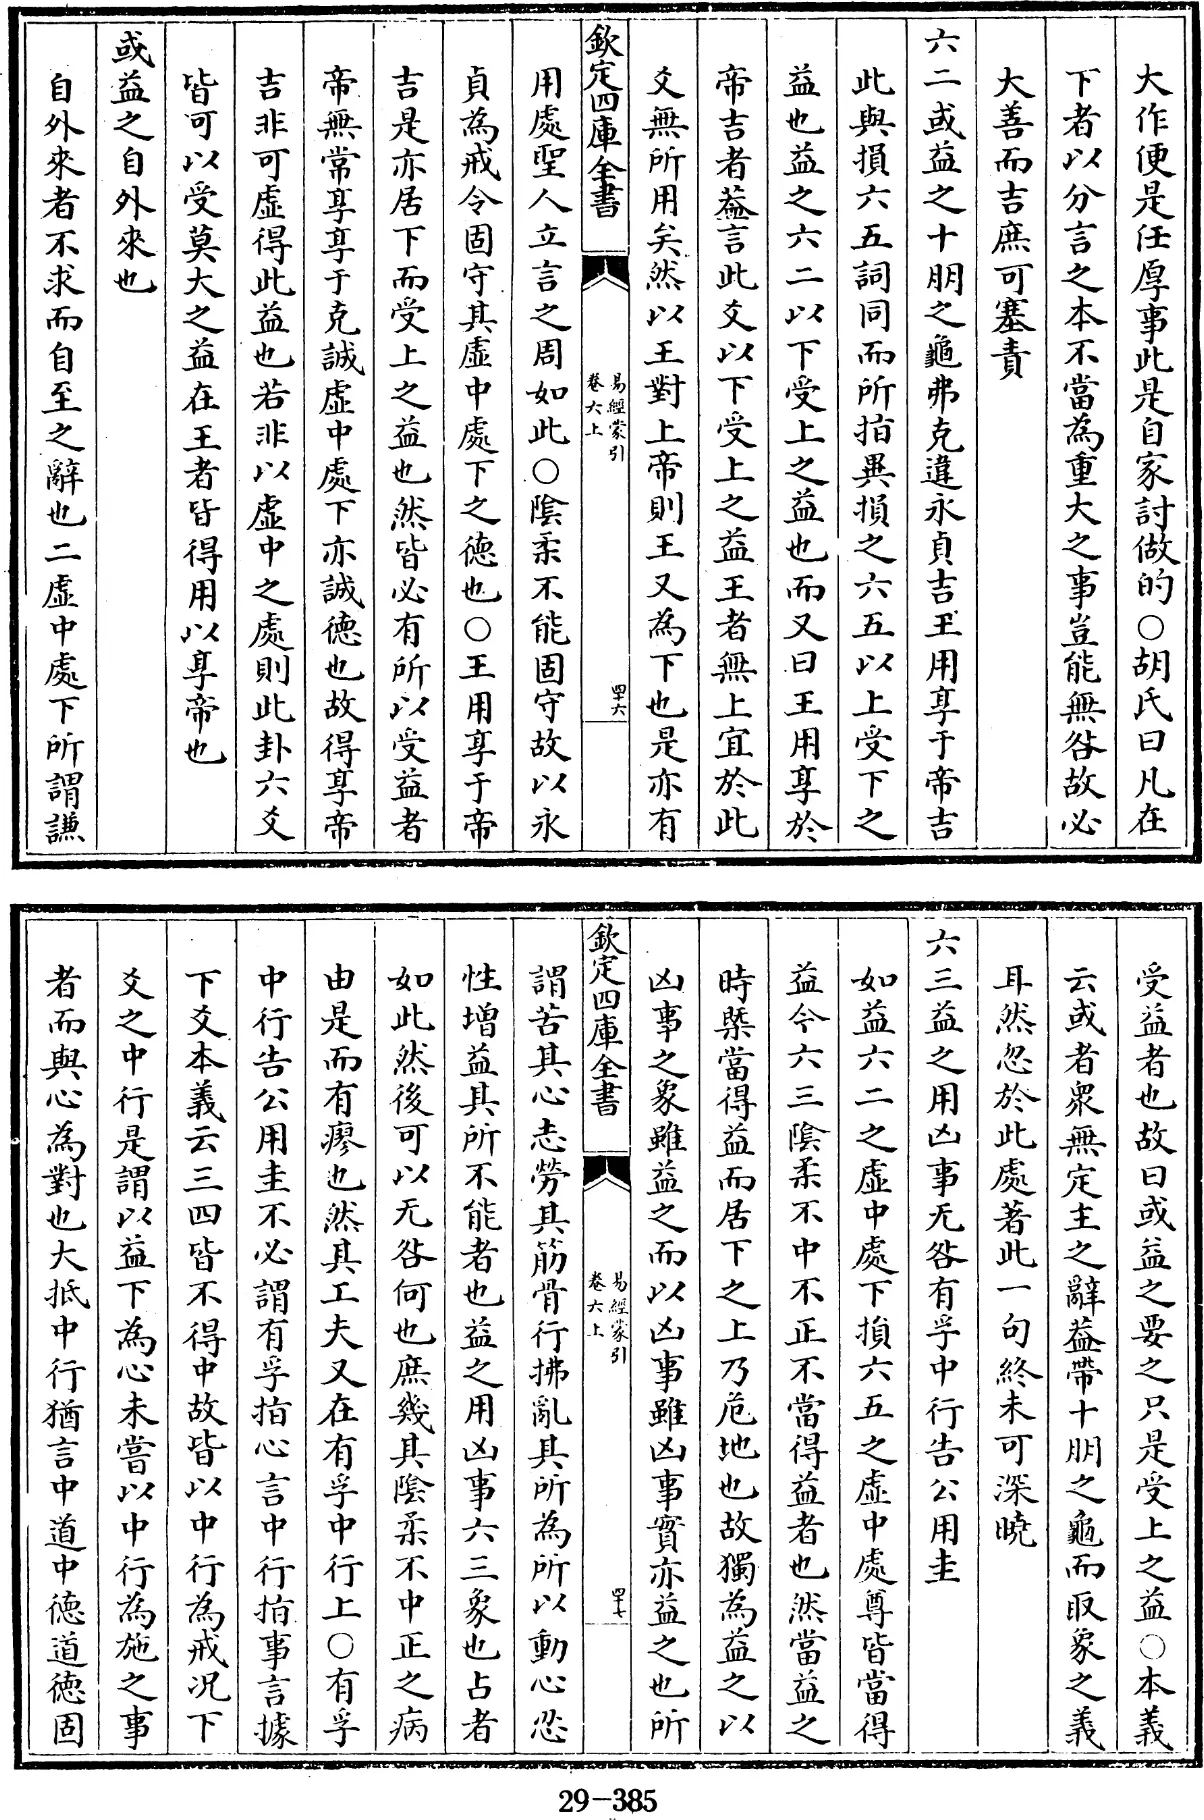 大作便是任厚事此是自家討做的○胡氏曰凡在
下者以分言之本不當為重大之事豈能無咎故必
大善而吉庶可塞責
六二或益之十朋之龜弗克違永貞吉王用享于帝吉
此與損六五詞同而所指異損之六五以上受下之
益也益之六二以下受上之益也而又曰王用享於
帝吉者葢言此爻以下受上之益王者無上宜於此
爻無所用矣然以王對上帝則王又為下也是亦有
欽定四庫全書
易經蒙引
卷六上
四十六
用處聖人立言之周如此○陰柔不能固守故以永
貞為戒令固守其虛中處下之德也○王用享于帝
吉是亦居下而受上之益也然皆必有所以受益者
帝無常享享于克誠虛中處下亦誠德也故得享帝
吉非可虛得此益也若非以虛中之處則此卦六爻
皆可以受莫大之益在王者皆得用以享帝也
或益之自外來也
自外來者不求而自至之辭也二虛中處下所謂謙
受益者也故曰或益之要之只是受上之益○本義
云或者衆無定主之辭葢帶十朋之龜而取象之義
耳然忽於此處著此一句終未可深曉
六三益之用凶事无咎有孚中行告公用圭
如益六二之虛中處下損六五之虛中處尊皆當得
益今六三陰柔不中不正不當得益者也然當益之
時槩當得益而居下之上乃危地也故獨為益之以
凶事之象雖益之而以凶事雖凶事實亦益之也所
欽定四庫全書
易經蒙引
卷六上
四十七
謂苦其心志勞其筋骨行拂亂其所為所以動心忍
性增益其所不能者也益之用凶事六三象也占者
如此然後可以无咎何也庶幾其陰柔不中正之病
由是而有瘳也然其工夫又在有孚中行上○有孚
中行告公用圭不必謂有孚指心言中行指事言據
下爻本義云三四皆不得中故皆以中行為戒况下
爻之中行是謂以益下為心未嘗以中行為施之事
者而與心為對也大抵中行猶言中道中德道德固
29-385